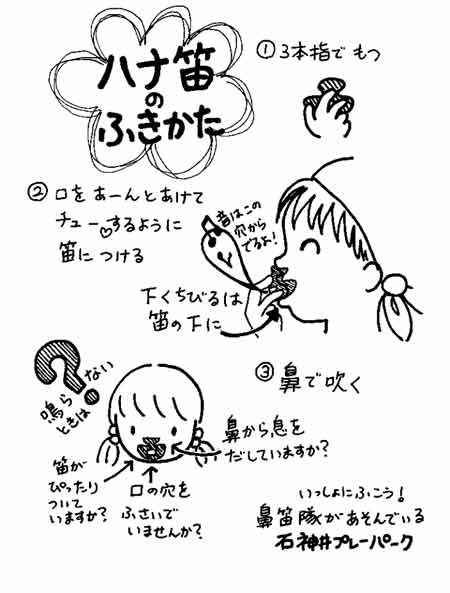 ハナ笛
の
ふきかた
① 3本指で もつ
② 口を あーんとあけて
チュー♡するように
笛に つける
音はこの
穴から
でるよ!
下くちびるは
笛の下に
?
鳴らない
ときは
③ 鼻で吹く
鼻から息を
だしていますか?
笛が
ぴったり
ついて
いますか?
口の穴を
ふさいで
いませんか?
いっしょにふこう!
鼻笛隊があそんでいる
石神井プレーパーク